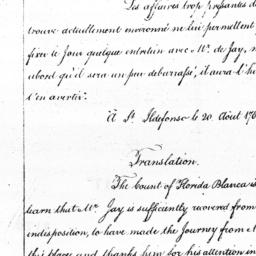 Des affaires trop pressantes d
trouve actuellement environné ne lui permettent p
fixer le Jour quelque entretien avec Mr. de Jay, m
abord qu'il sera un peu débarrassé, il aura l'h
l'en avertir.
À St. Ildefonso le 20 Août 178
Translation.
The Count of Florida Blanca is
learn that Mr. Jay is sufficiently recovered from
indisposition, to have made the Journey from M
this place and thanks him for his attention in